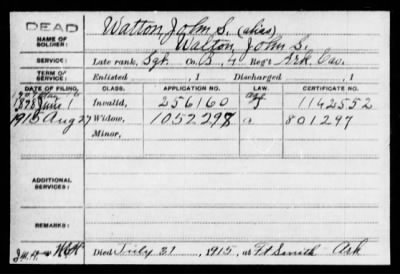 DEAD
NAME OF SOLDIER: Watton John S. (alias)
Walton, John S.
SERVICE: Late rank, Sgt Co. B, 4 Reg't Ark Cav.
TERM OF SERVICE: Enlisted , 1 Discharged , 1
DATE OF FILING. CLASS. APPLICATION NO. LAW. CERTIFICATE NO.
1898 June 1 Invalid, 256160 1142552
1915 Aug 27 Widow, 1052298 801297
Minor,
ADDITIONAL SERVICES:
REMARKS:
Died July 31, 1915, at Ft Smith Ark